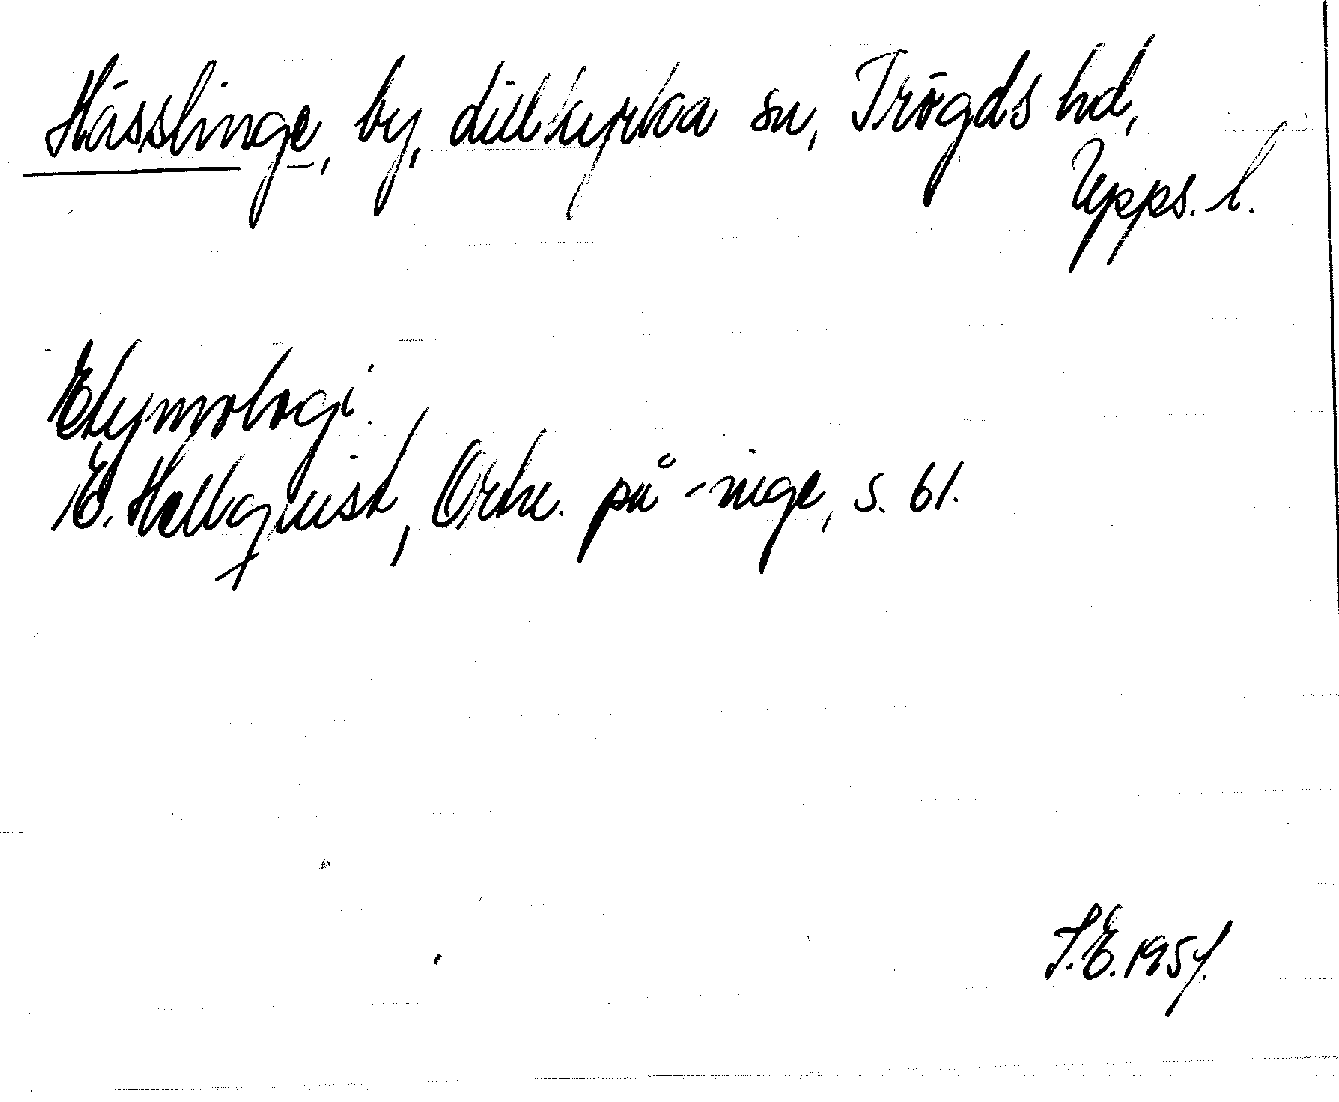 Hässlinge, by, Litslkyrka sn, Trögds hd,
Upps. l.
Etymologi.
E. Hellquist, Ortn. på -inge, s. 61.
S.E. 1954.